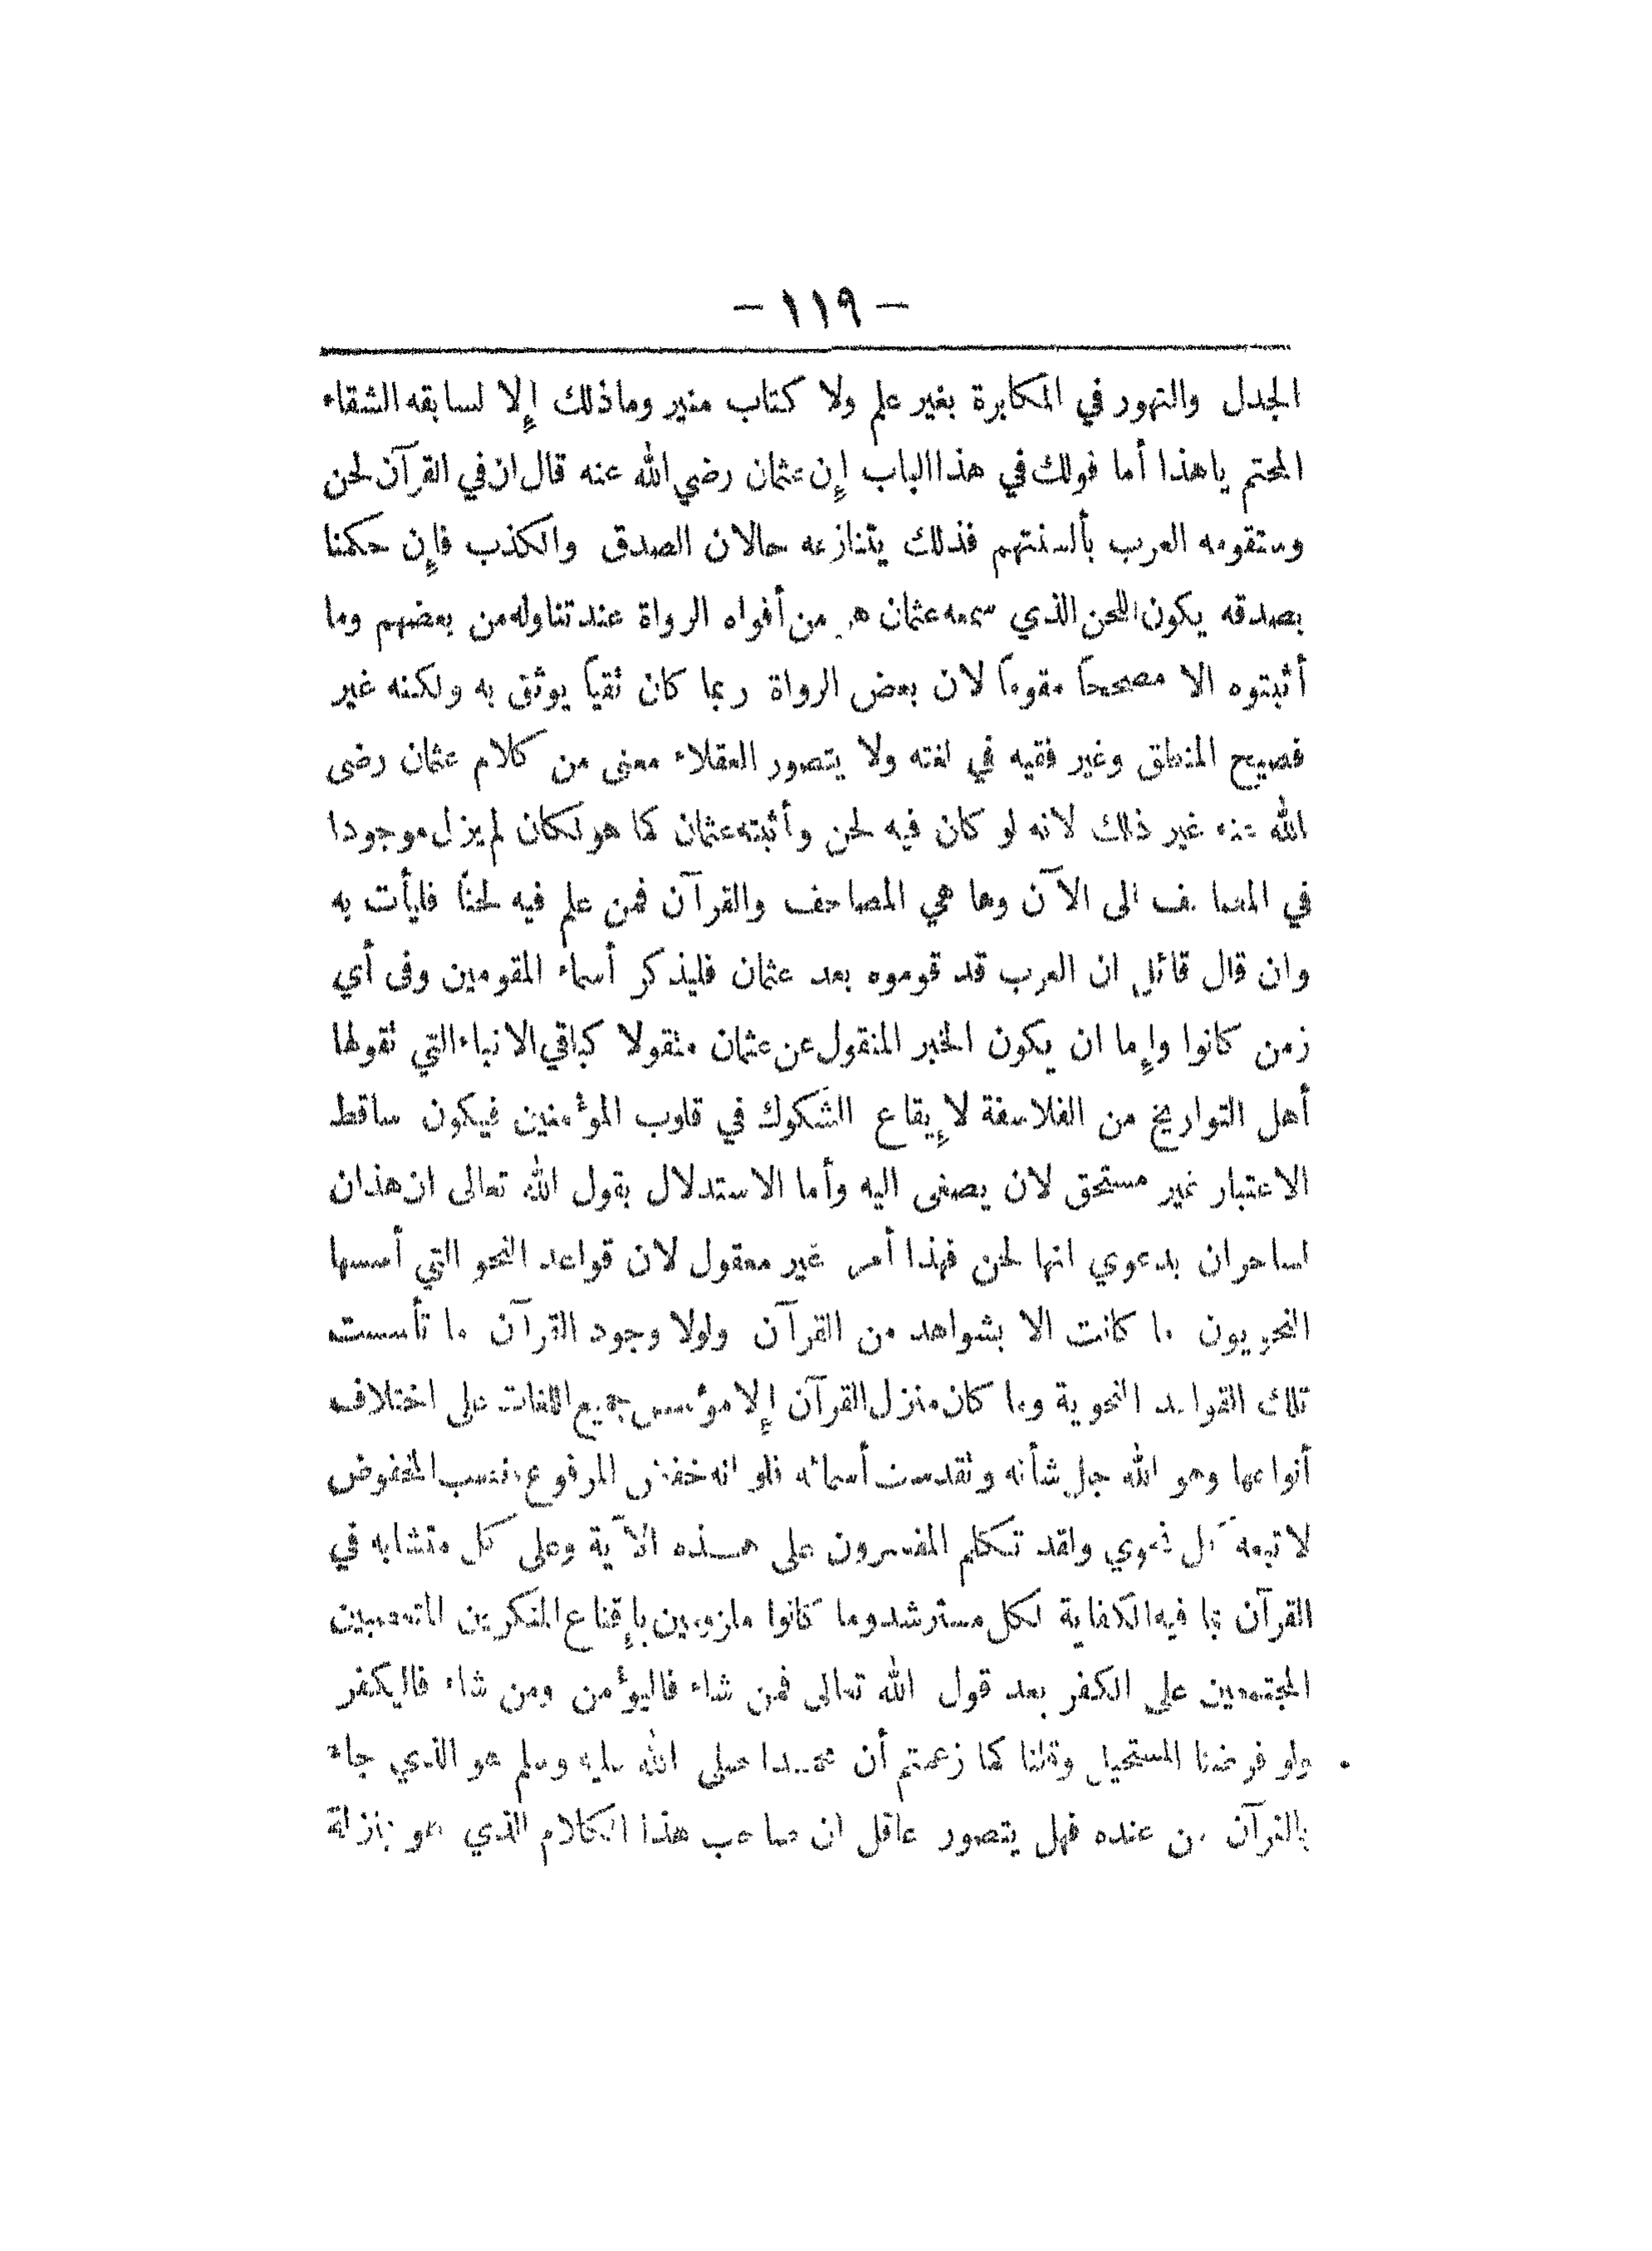 — ١١٩ —
الجدل والتهور في المكابرة بغير علم ولا كتاب منير وماذلك إلا لسابقه الشقاء
المحتم ياهذا أما قولك في هذا الباب إن عثمان رضي الله عنه قال ان في القرآن لحن
وستقومه العرب بألسنتهم فذلك يتنازعه حالان الصدق والكذب فإن حكمنا
بصدقه يكون اللحن الذي سمعه عثمان هو من أفواه الرواة عند تناوله من بعضهم وما
أثبتوه الا مصححاً مقوماً لان بعض الرواة ربما كان تقياً يوثق به ولكنه غير
فصيح المنطق وغير فقيه في لغته ولا يتصور العقلاء معنى من كلام عثمان رضى
الله عنه غير ذلك لانه لو كان فيه لحن وأثبته عثمان كما هو لكان لم يزل موجودا
في المصاحف الى الآن وها هي المصاحف والقرآن فمن علم فيه لحنًا فليأت به
وان قال قائل ان العرب قد قوموه بعد عثمان فليذكر أسماء المقومين وفى أي
زمن كانوا وإما ان يكون الخبر المنقول عن عثمان منقولا كباقي الانباء التي نقولها
أهل التواريخ من الفلاسفة لإيقاع الشكوك في قلوب المؤمنين فيكون ساقط
الاعتبار غير مستحق لان يصغى اليه وأما الاستدلال بقول الله تعالى ان هذان
لساحران بدعوي انها لحن فهذا أمر غير معقول لان قواعد النحو التي أسسها
النحويون ما كانت الا بشواهد من القرآن ولولا وجود القرآن ما تأسست
تلك القواعد النحوية وما كان منزل القرآن إلا مؤسس جميع اللغات على اختلاف
أنواعها وهو الله جل شأنه وتقدست أسمائه فلو انه خفض المرفوع ونصب المخفوض
لاتبعه كل نحوي ولقد تكلم المفسرون على هذه الآية وعلى كل متشابه في
القرآن بما فيه الكفاية لكل مسترشد وما كانوا ملزومين بإقناع المنكرين المتعصبين
المجتمعين على الكفر بعد قول الله تعالى فمن شاء فاليؤمن ومن شاء فاليكفر
ولو فرضنا المستحيل وقلنا كما زعمتم أن محمدا صلى الله عليه وسلم هو الذي جاء
بالقرآن من عنده فهل يتصور عاقل ان صاحب هذا الكلام الذي هو بمنزلة